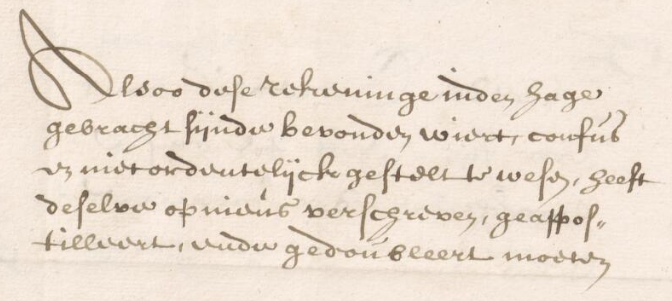 Alsoo dese rekeninge inden hage
gebracht sijnde bevonden wiert, confus
en niet ordentelijck gestelt te wesen, heeft
deselve opnieus verschreven, geappos-
tilleert, ende gedoubleert moeten